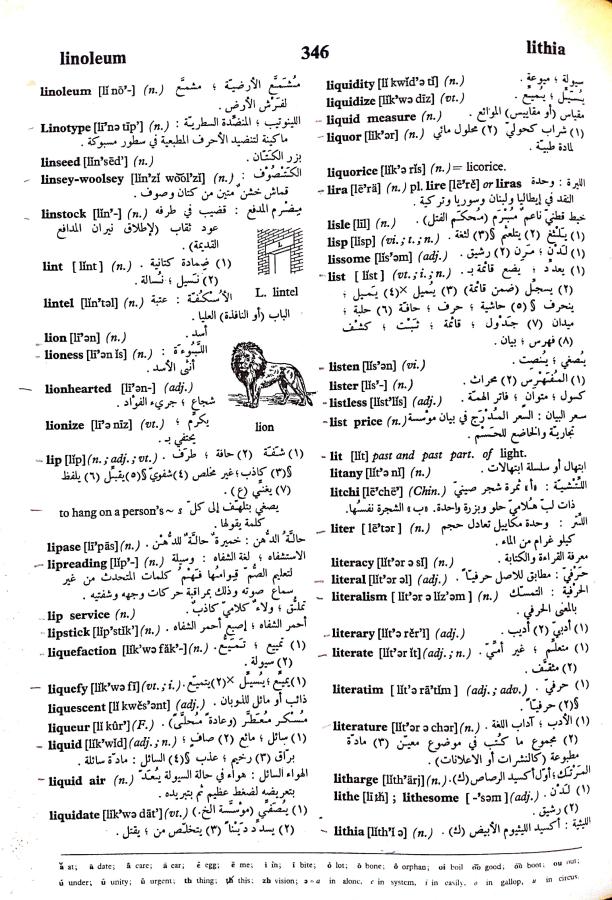 linoleum 346 lithia
linoleum [lĭ nō'-] (n.) مُشَمَّع الأرضيّة ؛ مشمَّع
لفَرْش الأرض .
Linotype [lī'nə tīp'] (n.) اللينوتيب ؛ المنضِّدة السطريّة :
ماكينة لتنضيد الأحرف المطبعية في سطور مسبوكة .
linseed [lĭn'sēd'] (n.) بزر الكَتّان .
linsey-woolsey [lĭn'zĭ wo͝ol'zĭ] (n.) الكَتْنَصُوف :
قماش خشنٌ متين من كتان وصوف .
linstock [lĭn'-] (n.) مِضرم المدفع : قضيب في طرفه
عود ثقاب (لإطلاق نيران المدافع
القديمة) .
lint [ lĭnt ] (n.) (١) ضِمادة كتانية .
(٢) نَسيل ؛ نُسالة .
L. lintel
lintel [lĭn'təl] (n.) الأُسْكُفّة : عتبة
الباب (أو النافذة) العليا .
lion [lī'ən] (n.) أسد .
lioness [lī'ən ĭs] (n.) اللَّبُوءة :
أنثى الأسد .
lionhearted [lī'ən-] (adj.)
شجاع ؛ جريء الفؤاد .
lionize [lī'ə nīz] (vt.) يكرّم ؛
يحتفي بـ .
lion
lip [lĭp] (n.; adj.; vt.) (١) شَفَة (٢) حافة ؛ طرف .
§(٣) كاذب؛ غير مخلص (٤) شفويّ §(٥) يقبِّل (٦) يلفظ
(٧) يغنّي (ع) .
to hang on a person's ~ s يصغي بتلهّف إلى كلّ
كلمة يقولها .
lipase [lī'pās] (n.) حالّةُ الدُّهن : خميرة حالّة للدُّهن .
lipreading [lĭp'-] (n.) الاستشفاه ؛ لغة الشفاه : وسيلة
لتعليم الصُّمّ قِوامُها فَهْمُ كلمات المتحدث من غير
سماع صوته وذلك بمراقبة حركات وجهه وشفتيه .
lip service (n.) تملّق ؛ ولاءٌ كلاميّ كاذبٌ .
lipstick [lĭp'stĭk'] (n.) أحمر الشفاه ؛ إصبع أحمر الشفاه .
liquefaction [lĭk'wə făk'-] (n.) (١) تمييع ؛ تَمَيُّع .
(٢) سيولة .
liquefy [lĭk'wə fī] (vt.; i.) (١) يميِّع؛ يُسيِّل ×(٢) يتميّع .
liquescent [lĭ kwĕs'ənt] (adj.) ذائب أو مائل للذوبان .
liqueur [lĭ kûr'] (F.) مُسكر مُعطَّر (وعادة مُحلَّى) .
liquid [lĭk'wĭd] (adj.; n.) (١) سائل ؛ مائع (٢) صافٍ ؛
برّاق (٣) رخيم ؛ عذب §(٤) السائل : مادة سائلة .
liquid air (n.) الهواء السائل : هواء في حالة السيولة يُعَدّ
بتعريضه لضغط عظيم ثم بتبريده .
liquidate [lĭk'wə dāt'] (vt.) (١) يُصَفّي (مؤسَّسة الخ.)
(٢) يسدِّد دَيْناً (٣) يتخلّص من ؛ يقتل .
liquidity [lĭ kwĭd'ə tĭ] (n.) سيولة ؛ ميوعة .
liquidize [lĭk'wə dīz] (vt.) يُسيِّل ؛ يُميِّع .
liquid measure (n.) مقياس (أو مقاييس) الموائع .
liquor [lĭk'ər] (n.) (١) شراب كحوليّ (٢) محلول مائي
لمادة طبيّة .
liquorice [lĭk'ə rĭs] (n.) = licorice.
lira [lē'rä] (n.) pl. lire [lē'rĕ] or liras الليرة : وحدة
النقد في إيطاليا ولبنان وسوريا وتركية .
lisle [līl] (n.) خيط قطنيّ ناعم مُبْرَم (مُحكَم الفتل) .
lisp [lĭsp] (vi.; t.; n.) (١) يَلْثَغ (٢) يتلعثم §(٣) لثغة .
lissome [lĭs'əm] (adj.) (١) لَدْن ؛ مَرِن (٢) رشيق .
list [ lĭst ] (vt.; i.; n.) (١) يعدِّد ؛ يضع قائمة بـ .
(٢) يسجِّل (ضمن قائمة) (٣) يُميل ×(٤) يَميل ؛
ينحرف §(٥) حاشية ؛ حرف ؛ حافة (٦) حلبة ؛
ميدان (٧) جدول ؛ قائمة ؛ ثَبَت ؛ كشف
(٨) فهرس ؛ بيان .
listen [lĭs'ən] (vi.) يُصغي ؛ يُنصِت .
lister [lĭs'-] (n.) (١) المُفَهرِس (٢) محراث .
listless [lĭst'lĭs] (adj.) كسول ؛ متوان ؛ فاتر الهمّة .
list price (n.) سعر البيان : السعر المُدْرَج في بيان مؤسسة
تجاريّة والخاضع للحسم .
lit [lĭt] past and past part. of light.
litany [lĭt'ə nĭ] (n.) ابتهال أو سلسلة ابتهالات .
litchi [lē'chē'] (Chin.) اللِّتْشِيّة : «أ» ثمرة شجر صينيّ
ذات لبّ هُلاميّ حلو وبزرة واحدة. «ب» الشجرة نفسُها .
liter [ lē'tər ] (n.) اللّتر : وحدة مكاييل تعادل حجم
كيلو غرام من الماء .
literacy [lĭt'ər ə sĭ] (n.) معرفة القراءة والكتابة .
literal [lĭt'ər əl] (adj.) حَرْفيّ : مطابق للاصل حرفياً .
literalism [ lĭt'ər ə lĭz'əm ] (n.) الحَرْفيّة : التمسّك
بالمعنى الحرفي .
literary [lĭt'ə rĕr'ĭ] (adj.) (١) أدبيّ (٢) أديب .
literate [lĭt'ər ĭt] (adj.; n.) (١) متعلّم ؛ غير أُمّيّ .
(٢) مثقّف .
literatim [ lĭt'ə rā'tĭm ] (adj.; adv.) (١) حرفيّ .
§(٢) حرفيّاً .
literature [lĭt'ər ə chər] (n.) (١) الأدب ؛ آداب اللغة .
(٢) مجموع ما كُتب في موضوع معيّن (٣) مادة
مطبوعة (كالنشرات أو الاعلانات) .
litharge [lĭth'ärj] (n.) المَرْتَك؛ أوّل أكسيد الرصاص (ك) .
lithe [līth] ; lithesome [ -'səm ] (adj.) (١) لَدْن .
(٢) رشيق .
lithia [lĭth'ĭ ə] (n.) الليثية : أكسيد الليثيوم الأبيض (ك) .
ă at; ā date; â care; ä car; ĕ egg; ē me; ĭ in; ī bite; ŏ lot; ō bone; ô orphan; oi boil o͝o good; o͞o boot; ou out;
ŭ under; ū unity; û urgent; th thing; th this; zh vision; ə = a in alone, e in system, i in easily, o in gallop, u in circus.